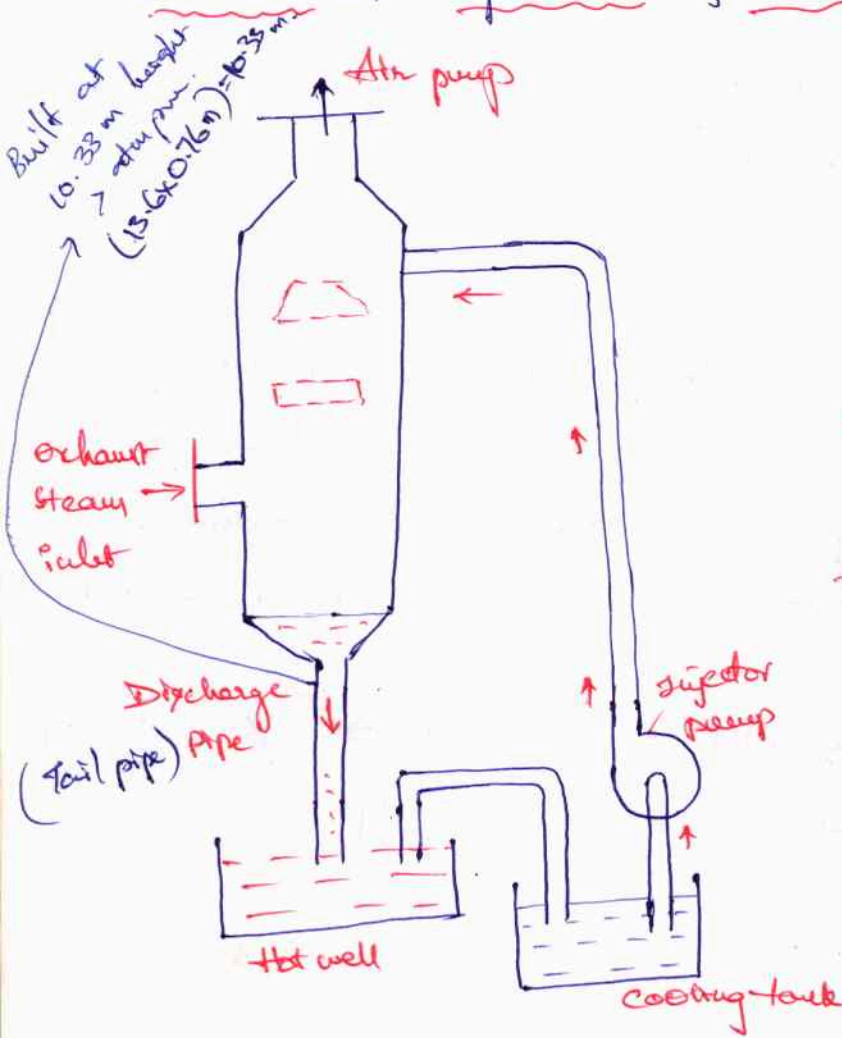 Built at
10.33 m height
> atm pr.
(13.6x0.76m)=10.33 m.
Air pump
exhaust
steam
inlet
Discharge
Pipe
(Tail pipe)
Injector
pump
Hot well
Cooling tank